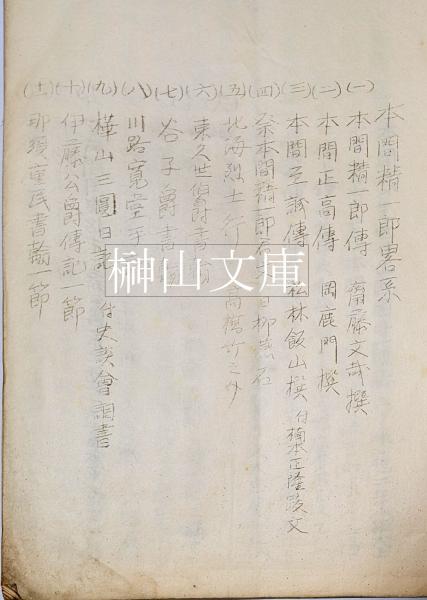 本間精一郎畧系
(一) 本間精一郎傳 齋藤文哉撰
(二) 本間正高傳 岡鹿門撰
(三) 本間至誠傳 松林飯山撰 付楠本正隆跋文
(四) 祭本間精一郎君文
(五) 北海烈士行
(六) 東久世伯爵書翰
(七) 谷子爵書翰
(八) 川路寛堂手
(九) 樺山三圓日誌 付史談會調書
(十) 伊藤公爵傳記一節
(十一) 那須重民書翰一節
榊山文庫